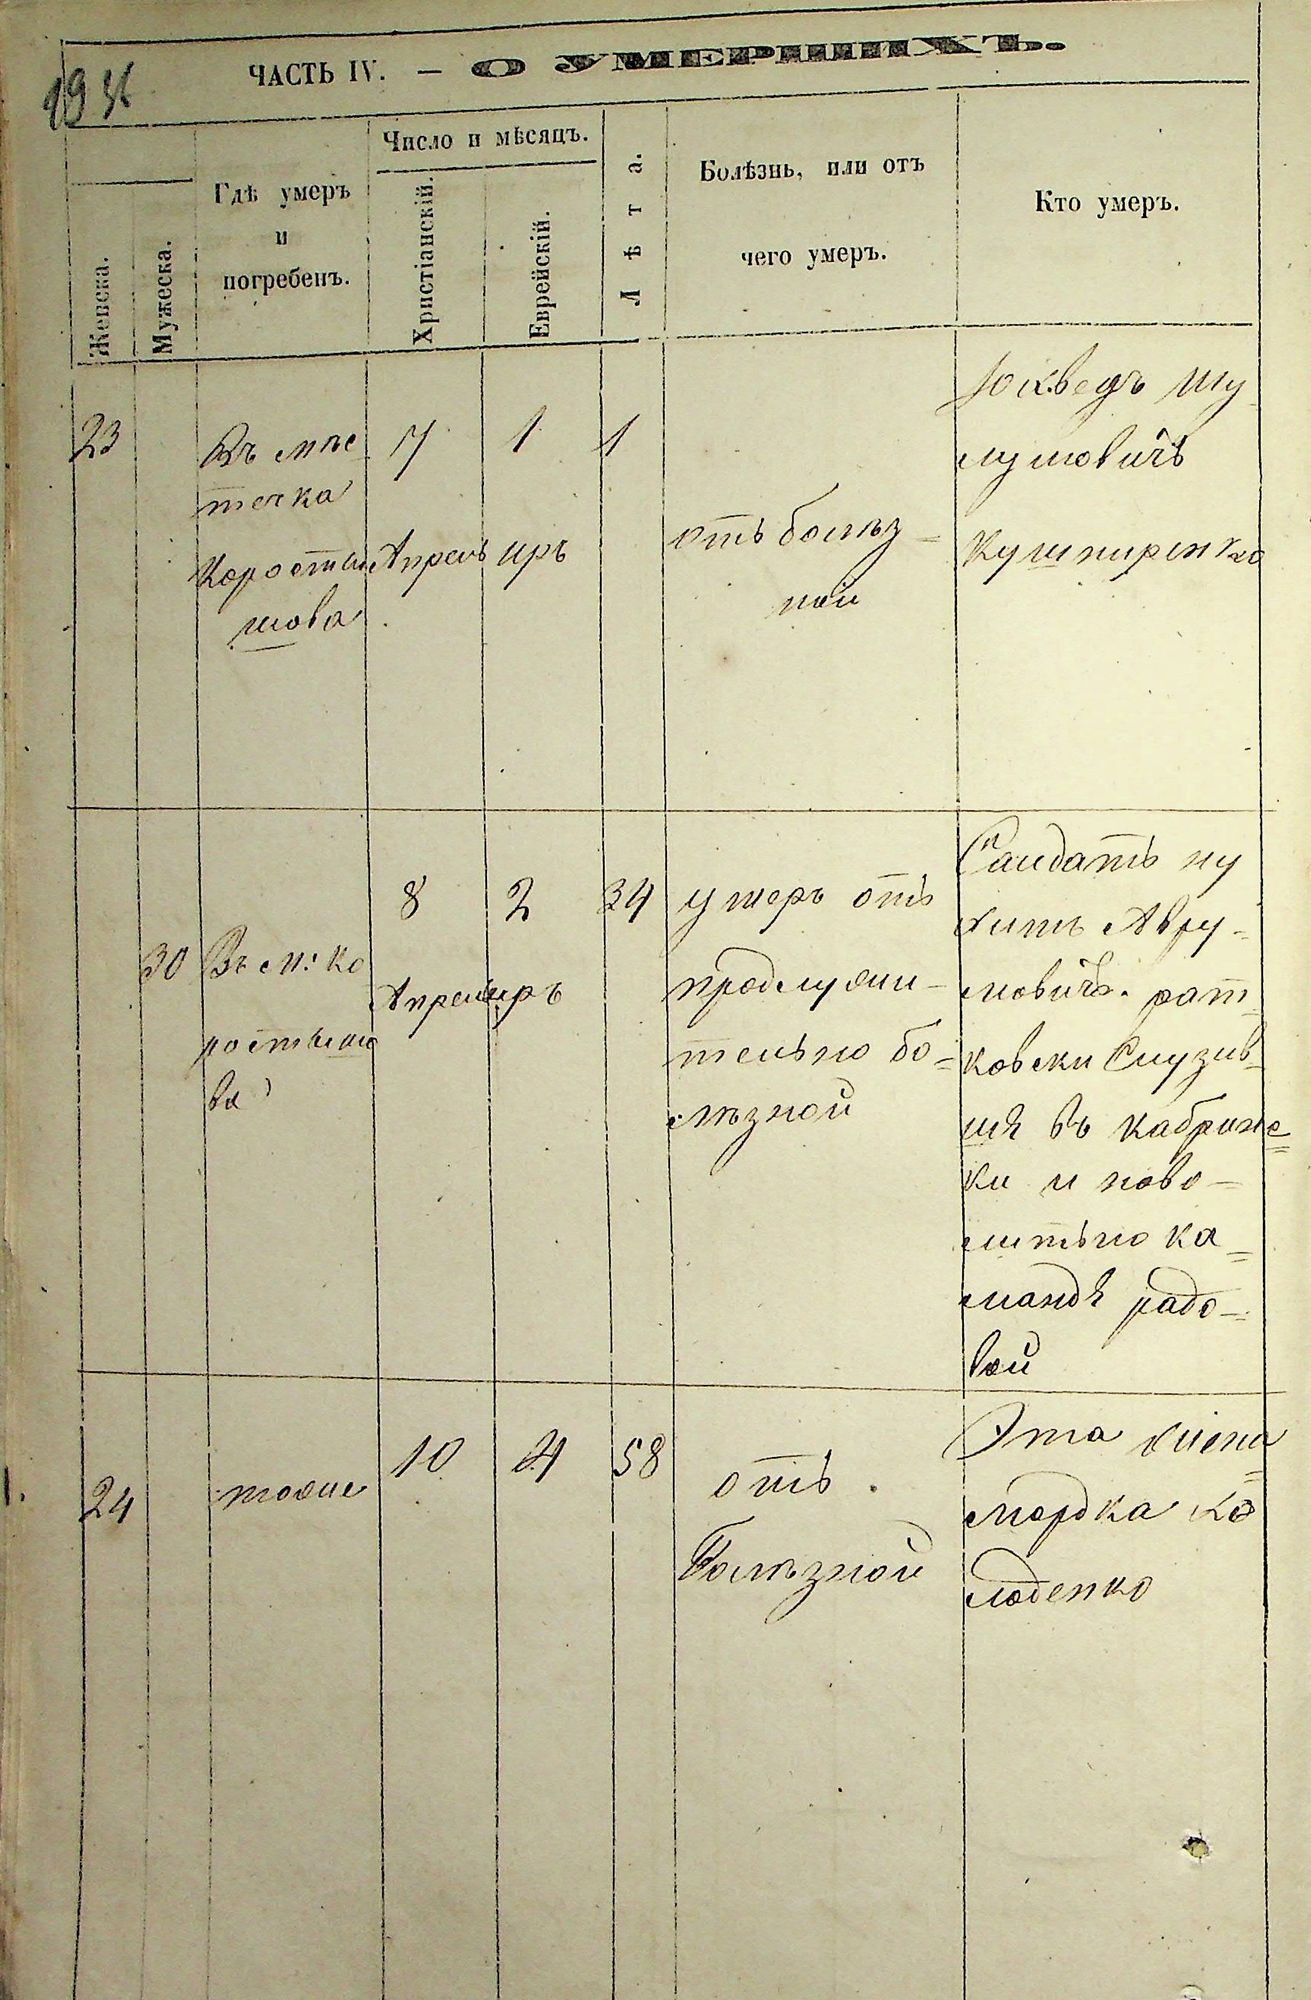 ЧАСТЬ IV. — О УМЕРШИХЪ.
Женска.
Мужеска.
Гдѣ умеръ
и
погребенъ.
Число и мѣсяцъ.
Христіанскій.
Еврейскій.
Лѣта.
Болѣзнь, или отъ
чего умеръ.
Кто умеръ.
23
Въ мѣс
течка
Коросты
шова
7
Апрель
1
иръ
1
отъ болѣз-
ной
Юхведъ Шу
лимовичъ
Кушниренко
30
Въ м: Ко
ростыше
ва
8
Апрель
2
иръ
34
умеръ отъ
продлужи-
тельно бо-
лѣзной
Салдатъ ну
химъ Авру-
мовичъ рат
ковски Служив
ши въ
ки и
ка-
мандѣ радо-
вой
24
тоже
10
4
58
отъ
Болѣзной
Эта жена
мордка Ко
лоденко